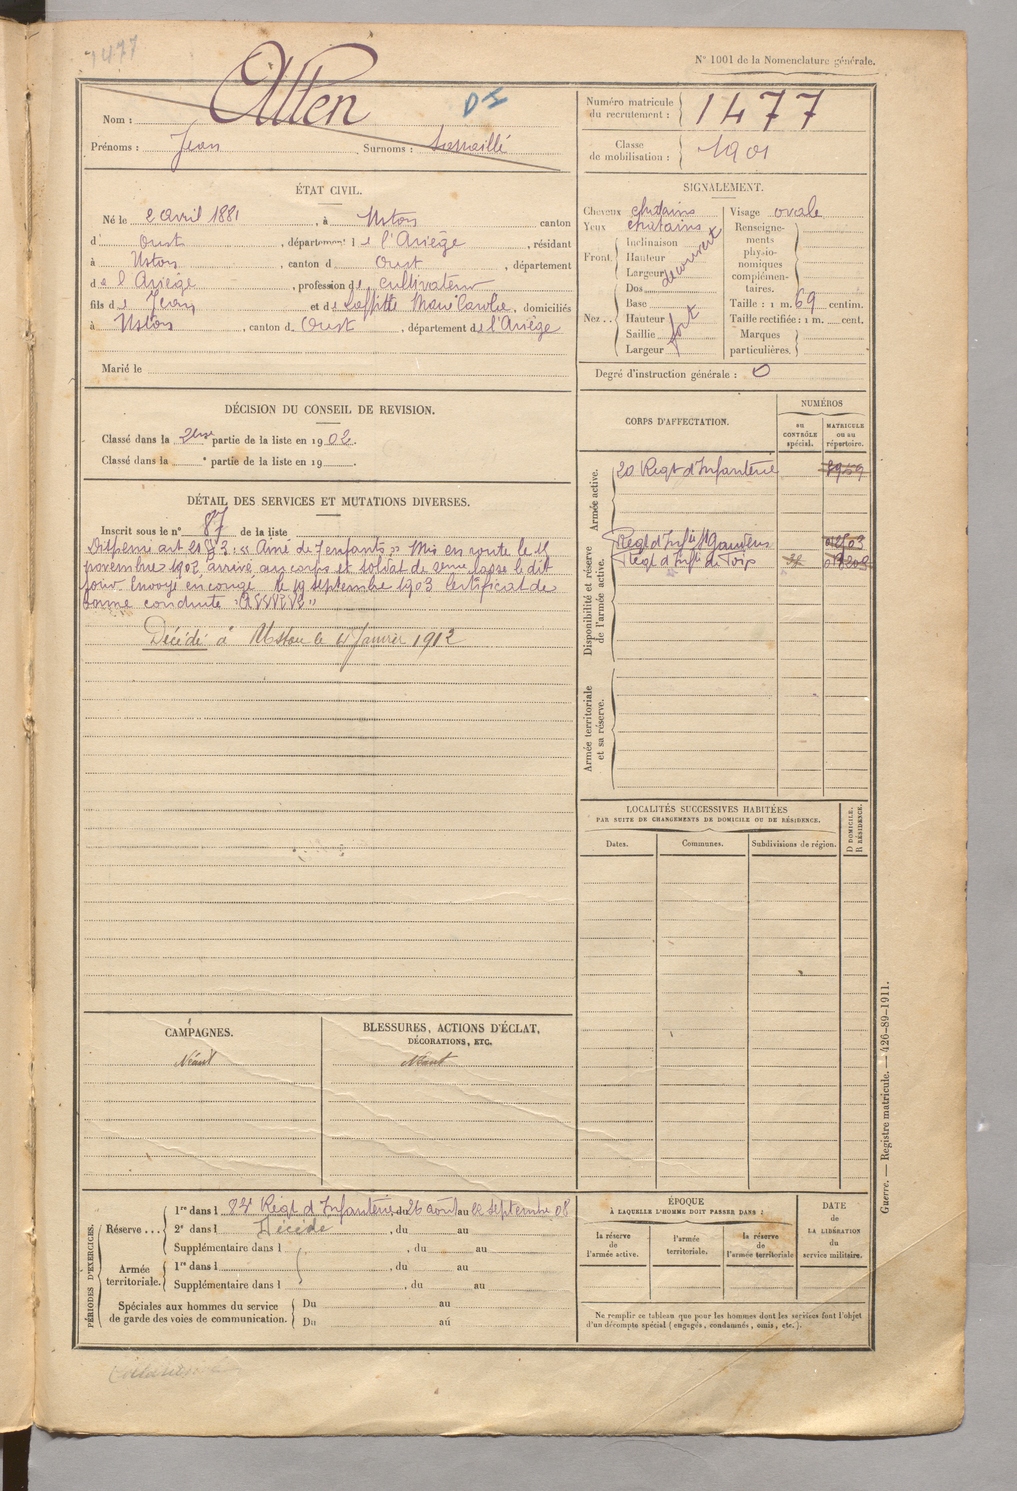 1477
N° 1001 de la Nomenclature générale.
Nom : Atten
DI
Prénoms : Jean Surnoms :
Numéro matricule du recrutement : 1477
Classe de mobilisation : 1901
ÉTAT CIVIL.
Né le 2 avril 1881, à Ustou canton
d' Oust, département de l'Ariège, résidant
à Ustou, canton d Oust, département
de l'Ariège, profession de cultivateur
fils de Jean et de Laffitte Marie, domiciliés
à Ustou, canton d Oust, département de l'Ariège
Marié le
SIGNALEMENT.
Cheveux chatains
Yeux chatains
Front. Inclinaison
Hauteur
Largeur
découvert
Nez . . Dos
Base
Hauteur
Saillie
Largeur
fort
Visage ovale
Renseignements physionomiques complémentaires.
Taille : 1 m. 69 centim.
Taille rectifiée : 1 m. cent.
Marques particulières.
Degré d'instruction générale : 0
DÉCISION DU CONSEIL DE REVISION.
Classé dans la 2ème partie de la liste en 1902.
Classé dans la e partie de la liste en 19 .
CORPS D'AFFECTATION.
NUMÉROS
au CONTRÔLE spécial.
MATRICULE ou au répertoire.
Armée active.
20 Regt d'Infanterie
Disponibilité et réserve de l'armée active.
Régt d'Infie St Gaudens
Régt d'Infie de Foix
Armée territoriale et sa réserve.
DÉTAIL DES SERVICES ET MUTATIONS DIVERSES.
Inscrit sous le n° 87 de la liste
Dispensé art 21 § 3 : « Ainé de 7 enfants » Mis en route le 15
novembre 1902 arrivé au corps et soldat de 2ème classe le dit
jour. Envoyé en congé le 19 septembre 1903 Certificat de
bonne conduite "
Décédé à Ustou le 4 Janvier 1912
LOCALITÉS SUCCESSIVES HABITÉES
PAR SUITE DE CHANGEMENTS DE DOMICILE OU DE RÉSIDENCE.
D DOMICILE, R RÉSIDENCE.
Dates. Communes. Subdivisions de région.
CAMPAGNES.
Néant
BLESSURES, ACTIONS D'ÉCLAT,
DÉCORATIONS, ETC.
Néant
Guerre. — Registre matricule. — 426-89-1911.
PÉRIODES D'EXERCICES.
Réserve . . . 1re dans l Régt d'Infanterie, du 26 août au 22 septembre 08
2e dans l Décédé, du au
Supplémentaire dans l , du au
Armée territoriale. 1re dans l , du au
Supplémentaire dans l , du au
Spéciales aux hommes du service de garde des voies de communication. Du au
Du au
ÉPOQUE
À LAQUELLE L'HOMME DOIT PASSER DANS :
la réserve de l'armée active.
l'armée territoriale.
la réserve de l'armée territoriale
DATE de LA LIBÉRATION du service militaire.
Ne remplir ce tableau que pour les hommes dont les services font l'objet
d'un décompte spécial (engagés, condamnés, omis, etc.).